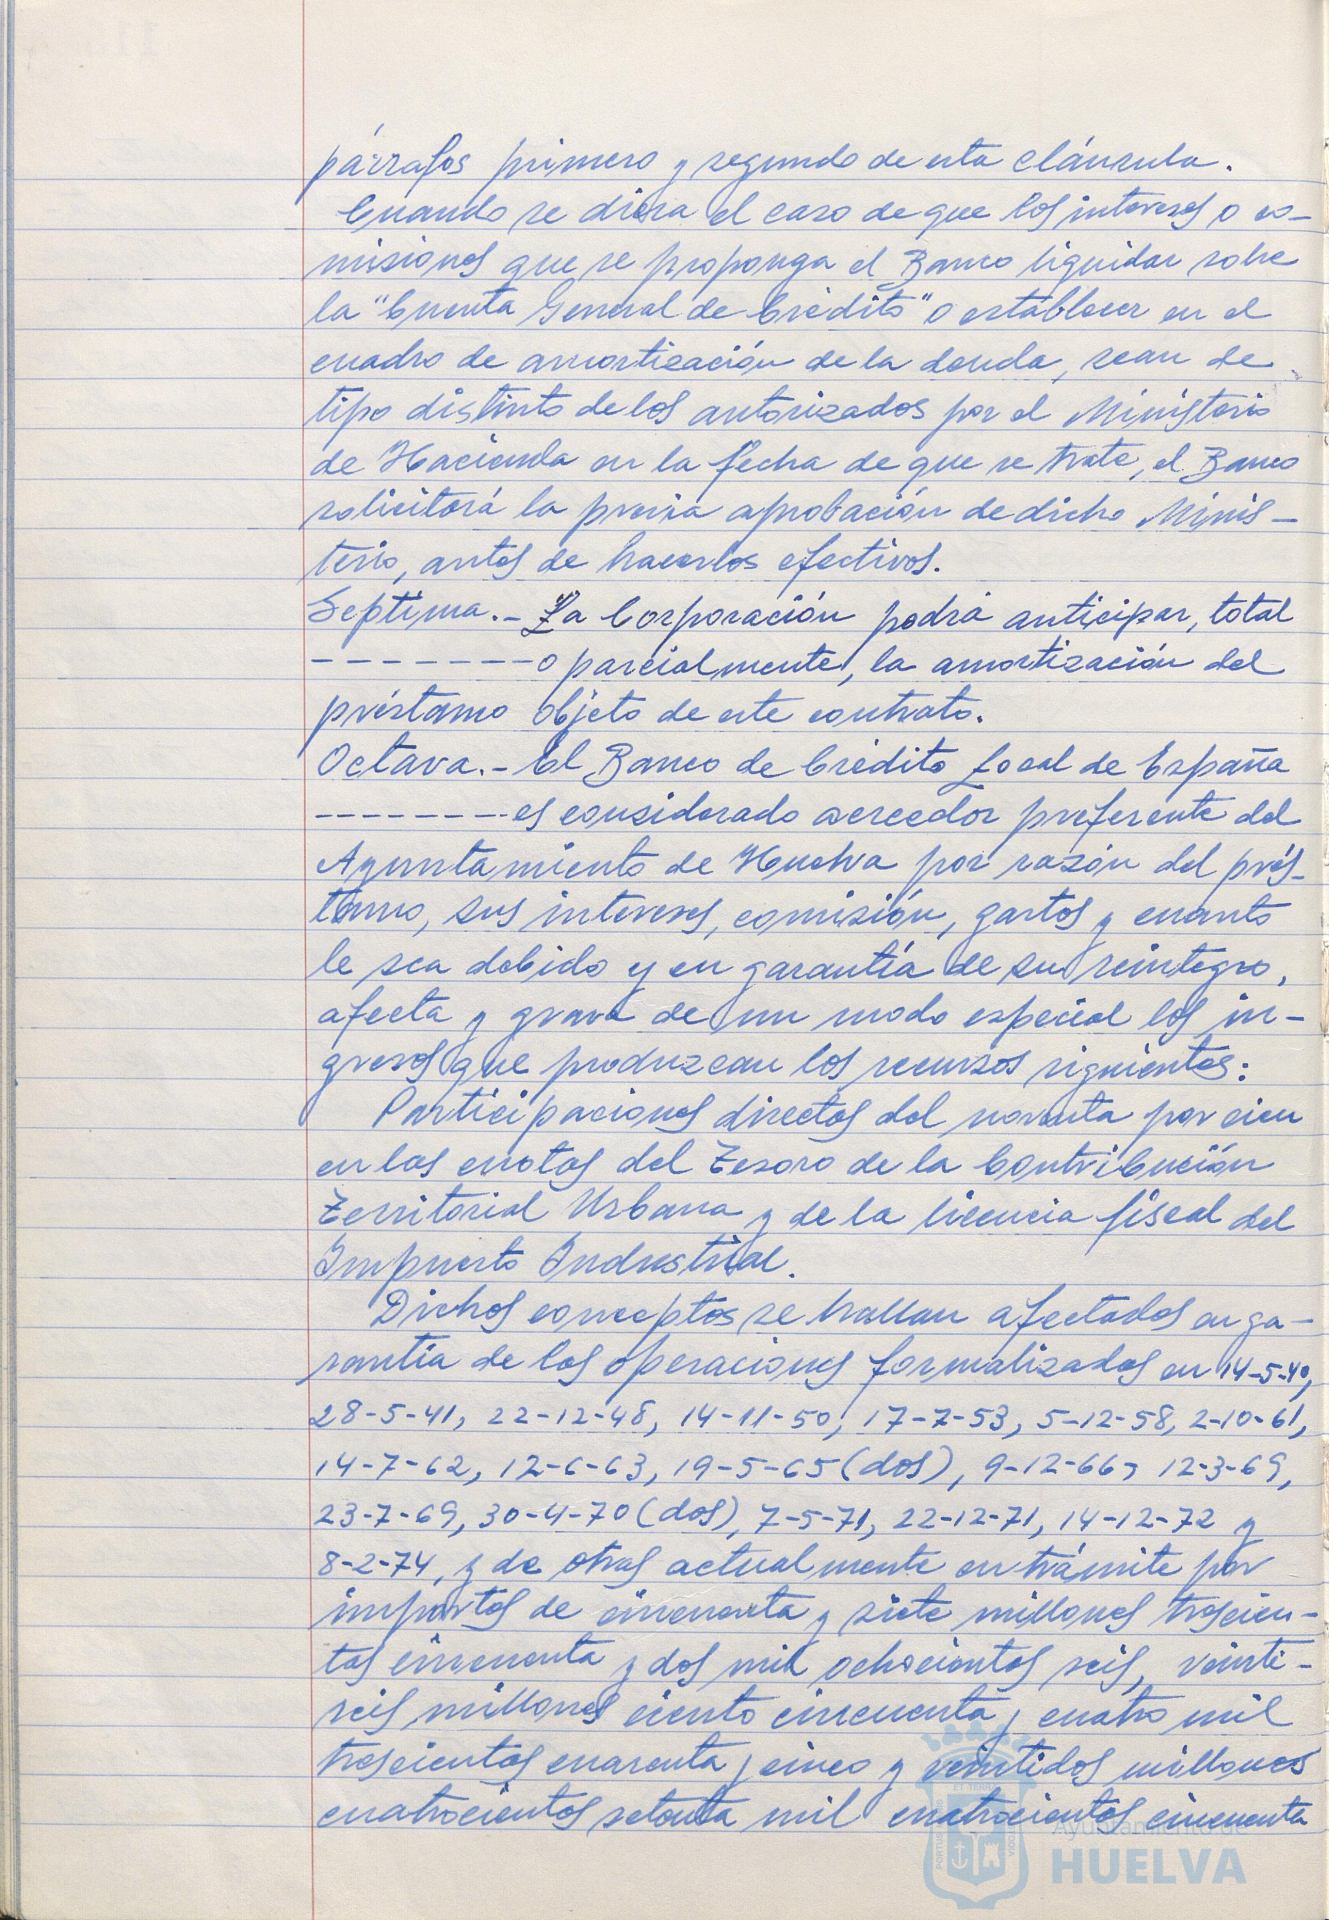 párrafos primero y segundo de esta cláusula.
Cuando se diera el caso de que los intereses o co-
misiones que se proponga el Banco liquidar sobre
la "Cuenta General de Crédito" o establecer en el
cuadro de amortización de la deuda, sean de
tipo distinto de los autorizados por el Ministerio
de Hacienda en la fecha de que se trate, el Banco
solicitará la previa aprobación de dicho Minis-
terio, antes de hacerlos efectivos.
Séptima.- La Corporación podrá anticipar, total
--------o parcialmente, la amortización del
préstamo objeto de este contrato.
Octava.- El Banco de Crédito Local de España
--------es considerado acreedor preferente del
Ayuntamiento de Huelva por razón del prés-
tamo, sus intereses, comisión, gastos y cuanto
le sea debido y en garantía de su reintegro,
afecta y grava de un modo especial los in-
gresos que produzcan los recursos siguientes:
Participaciones directas del noventa por cien
en las cuotas del Tesoro de la Contribución
Territorial Urbana y de la licencia fiscal del
Impuesto Industrial.
Dichos conceptos se hallan afectados en ga-
rantía de las operaciones formalizadas en 14-5-40,
28-5-41, 22-12-48, 14-11-50, 17-7-53, 5-12-58, 2-10-61,
14-7-62, 12-6-63, 19-5-65 (dos), 9-12-66, 12-3-69,
23-7-69, 30-4-70 (dos), 7-5-71, 22-12-71, 14-12-72 y
8-2-74, y de otras actualmente en trámite por
importes de cincuenta y siete millones trescien-
tas cincuenta y dos mil ochocientas seis, veinti-
seis millones ciento cincuenta y cuatro mil
trescientas cuarenta y cinco y veintidos millones
cuatrocientos setenta mil cuatrocientas cincuenta
Ayuntamiento de
HUELVA